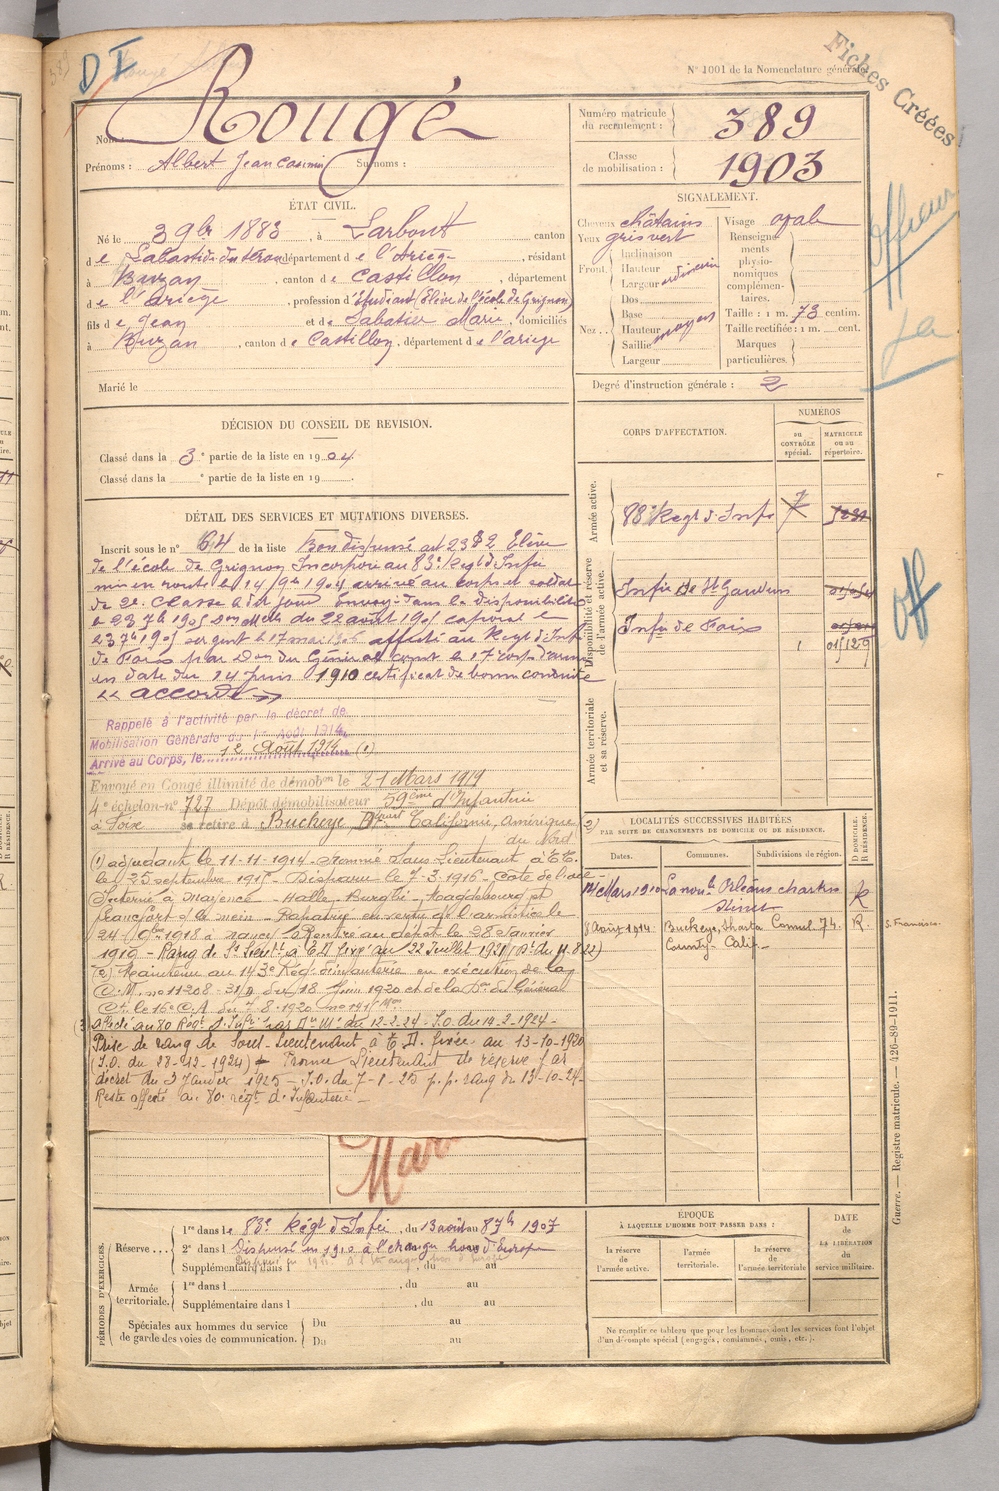 D I
N° 1001 de la Nomenclature générale
Fiches Créées
Nom
Rougé
Prénoms : Albert Jean Casimir Surnoms :
Numéro matricule du recrutement : 389
Classe de mobilisation : 1903
ÉTAT CIVIL.
Né le 3 9bre 1883, à Larbont canton
de Labastide de Sérou département de l'Ariège, résidant
à Buzan, canton de Castillon, département
de l'Ariège, profession d'étudiant (Élève de l'école de Grignon)
fils de Jean et de Sabatier Marie, domiciliés
à Buzan, canton de Castillon, département de l'ariege
Marié le
SIGNALEMENT.
Cheveux châtains Visage ovale
Yeux gris vert
Renseignements physionomiques complémentaires.
Front.
Inclinaison
Hauteur
Largeur
Dos
Nez . .
Base
Hauteur moyens
Saillie
Largeur
Taille : 1 m. 73 centim.
Taille rectifiée : 1 m. cent.
Marques particulières.
Degré d'instruction générale : 2
Officier
DÉCISION DU CONSEIL DE REVISION.
Classé dans la 3e partie de la liste en 1904
Classé dans la e partie de la liste en 19
CORPS D'AFFECTATION.
NUMÉROS
AU CONTRÔLE spécial.
MATRICULE ou au répertoire.
Armée active.
Disponibilité et réserve de l'armée active.
Infie de St Gaudens
Infie de Foix
1
Armée territoriale et sa réserve.
off
DÉTAIL DES SERVICES ET MUTATIONS DIVERSES.
Inscrit sous le n° 64 de la liste Bon dispensé art 23 § 2 Élève
de l'école de Grignon Incorporé au 83e Régt d'Infie
mis en route le 14 9bre 1904 arrivé au corps et soldat
de 2e classe le dit jour Envoyé dans la disponibilité
le 23 7bre 1905 Don Melle du 22 août 1905 caporal le
23 7bre 1905 sergent le 17 mai 1906 affecté au Regt d'Infie
de Foix par Don du Général commt le 17e corps d'armée
en date du 14 Juin 1910 certificat de bonne conduite
"accordé"
Rappelé à l'activité par le décret de
Mobilisation Générale du 1er Août 1914
Arrivé au Corps, le 12 Août 1914 (1)
Envoyé en Congé illimité de démobon le 21 Mars 1919
4e échelon - n° 727 Dépôt démobilisateur 59ème d'Infanterie
à Foix se retire à Buckeye Californie, Amérique
du Nord
(1) adjudant le 11-11-1914 - Nommé Sous Lieutenant à T.T.
le 25 septembre 1915 - Disparu le 7-3-1916 - Côte de l'oie -
Interné à Mayence - Halle - Burg - Magdebourg et
francfort s/ le mein - Rapatrié en vertu de l'armistice le
24 - 9bre 1918 à nancy Rentre au dépôt le 28 Janvier
1919 - Rang de S. Lieutt à T.D fixé au 22 Juillet 1921
(2) Maintenu au 143e Rég. d'infanterie en exécution de la
C.M. no 11208 - 31/A du 18 Juin 1920 et de la Don du Général
Ct. le 16e C.A du 7-8-1920
(3) affecté au 80 Régt d'Infie par Don Mle du 12-2-24 - J.O. du 14-2-1924 -
Prise de rang de sous-Lieutenant à T.D. fixée au 13-10-1920
(J.O. du 28-12-1924) - Promu Lieutenant de réserve par
décret du 3 Janvier 1925 - J.O. du 7-1-25 p.p. rang du 13-10-24-
Reste affecté au 80. régt d'Infanterie -
LOCALITÉS SUCCESSIVES HABITÉES
PAR SUITE DE CHANGEMENTS DE DOMICILE OU DE RÉSIDENCE.
Dates. Communes. Subdivisions de région. D DOMICILE. R RÉSIDENCE.
14 Mars 1910 La nouvle Orléans chartres street R
8 Août 1914 Buckeye, Shasta Consul 74 R. S. Francisco
County Calif.
PÉRIODES D'EXERCICES.
Réserve . . .
1re dans le 83e Régt d'Infie, du 13 août au 8 7bre 1907
2e dans l Dispensé en 1910 à l'étranger hors d'Europe
Supplémentaire dans l , du au
Armée territoriale.
1re dans l , du au
Supplémentaire dans l , du au
Spéciales aux hommes du service de garde des voies de communication.
Du au
Du au
ÉPOQUE
À LAQUELLE L'HOMME DOIT PASSER DANS :
la réserve de l'armée active.
l'armée territoriale.
la réserve de l'armée territoriale
DATE de LA LIBÉRATION du service militaire.
Ne remplir ce tableau que pour les hommes dont les services font l'objet
d'un décompte spécial (engagés, condamnés, omis, etc.).
Guerre. — Registre matricule. — 426-89-1911.